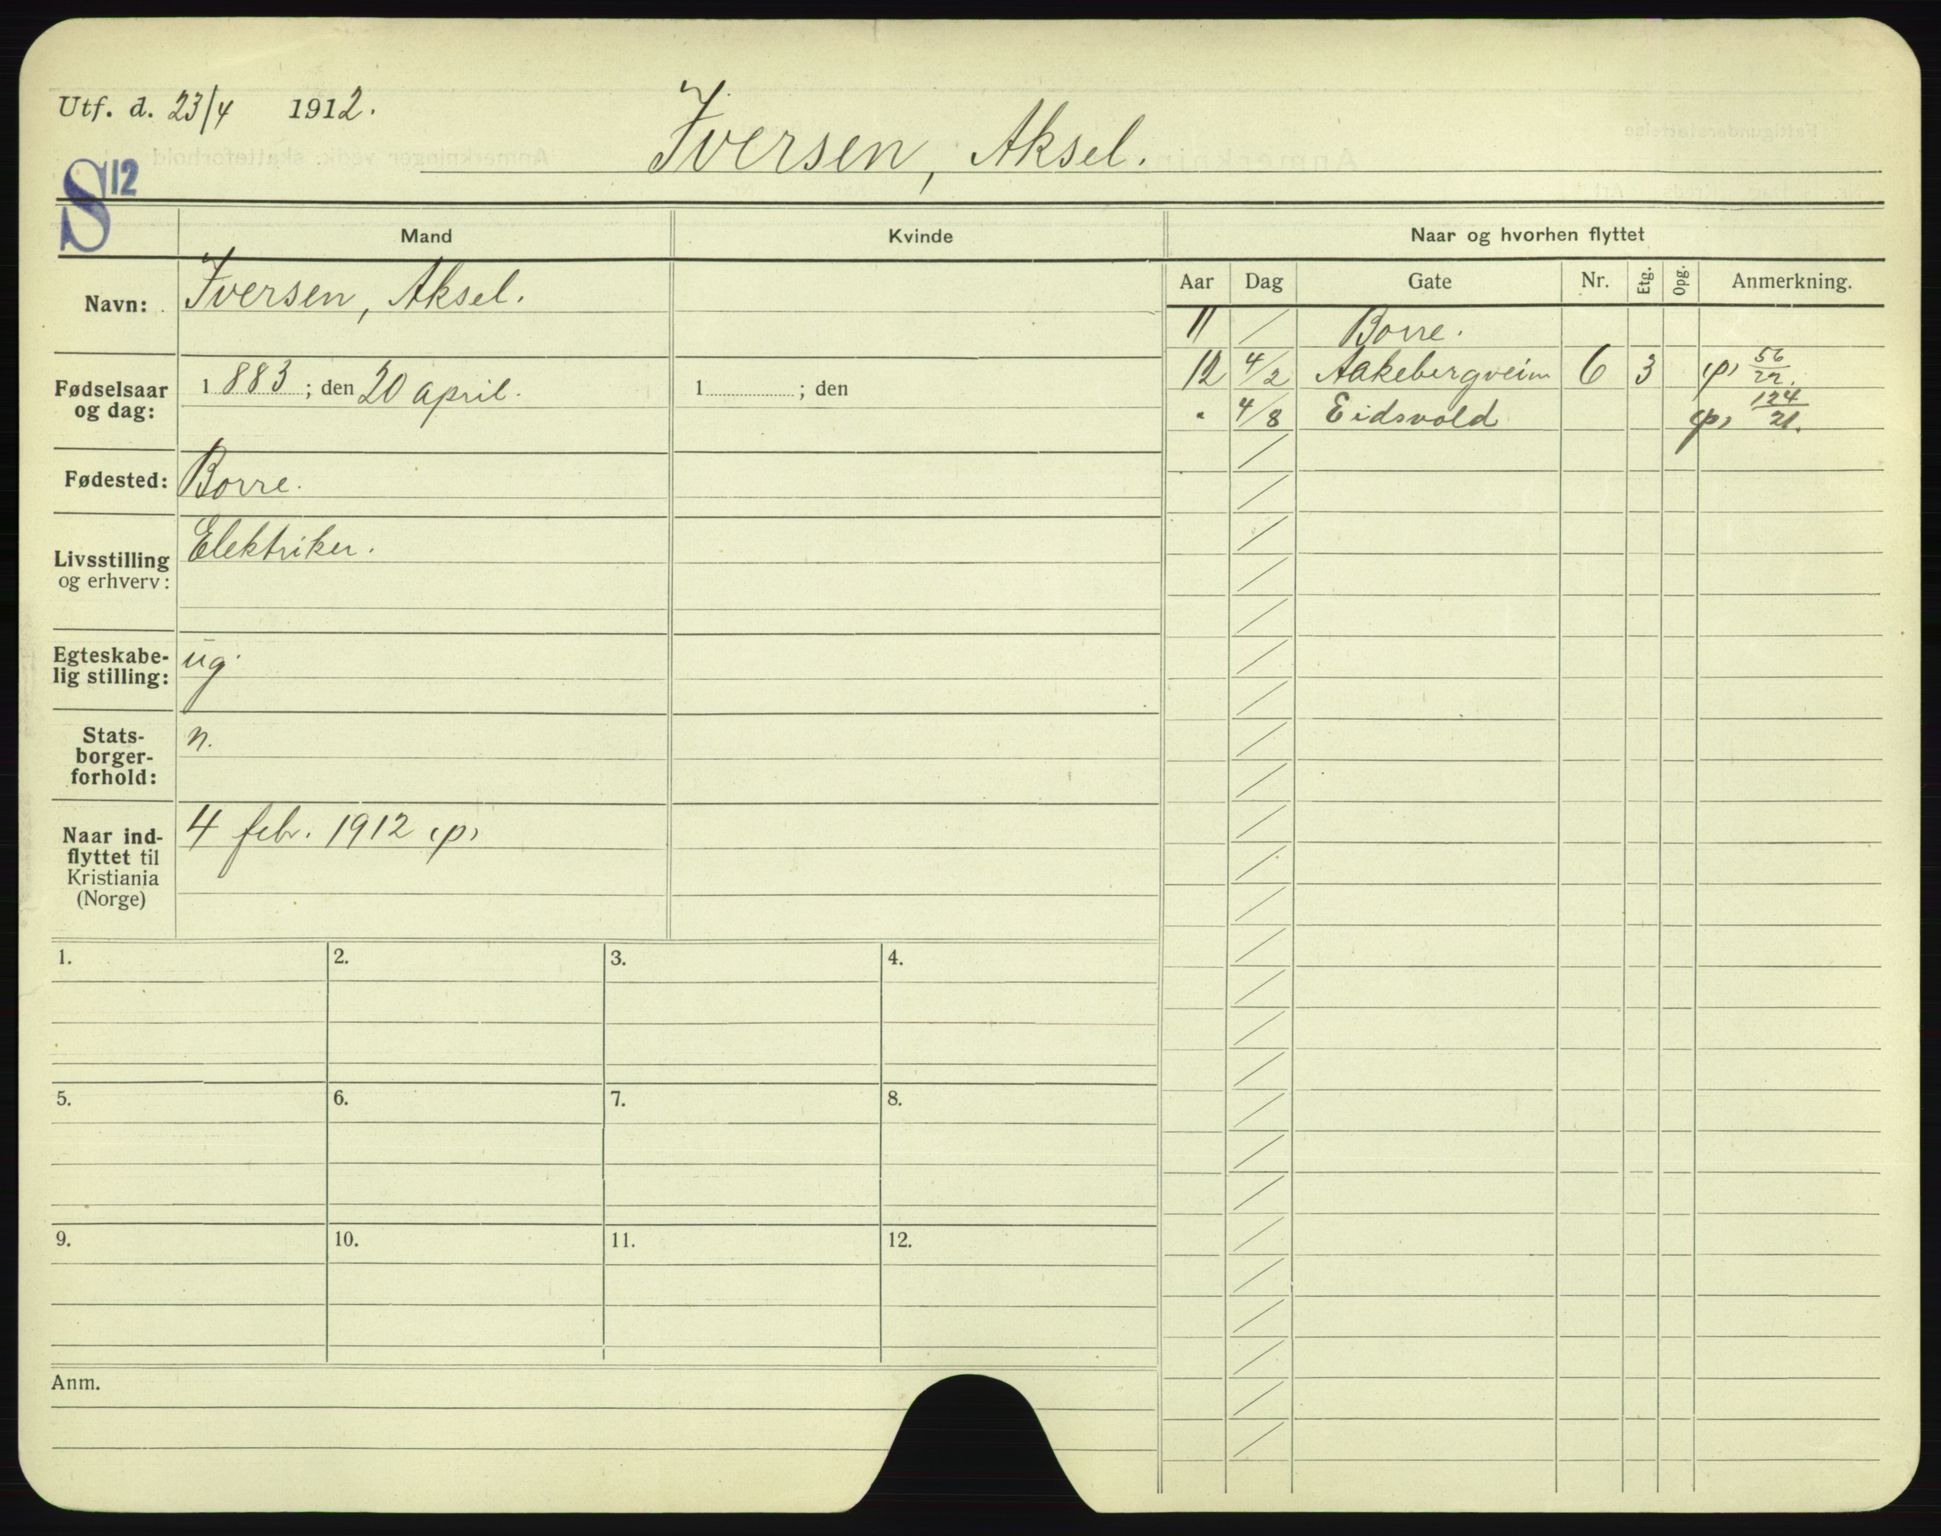 Utf. d. 23/4 1912.
Iversen, Aksel.
S 12
Mand
Kvinde
Naar og hvorhen flyttet
Navn:
Iversen, Aksel.
Fødselsaar og dag:
1 883 ; den 20 april.
1 ; den
Fødested:
Borre.
Livsstilling
og erhverv:
Elektriker.
Egteskabe-
lig stilling:
ug.
Stats-
borger-
forhold:
n.
Naar ind-
flyttet til
Kristiania
(Norge)
4 febr. 1912 (p)
Aar Dag Gate Nr. Etg. Opg. Anmerkning.
11 / Borre.
12 4/2 Aakebergveien 6 3 (p) 56/22.
" 4/8 Eidsvold (p) 124/21.
1. 2. 3. 4.
5. 6. 7. 8.
9. 10. 11. 12.
Anm.